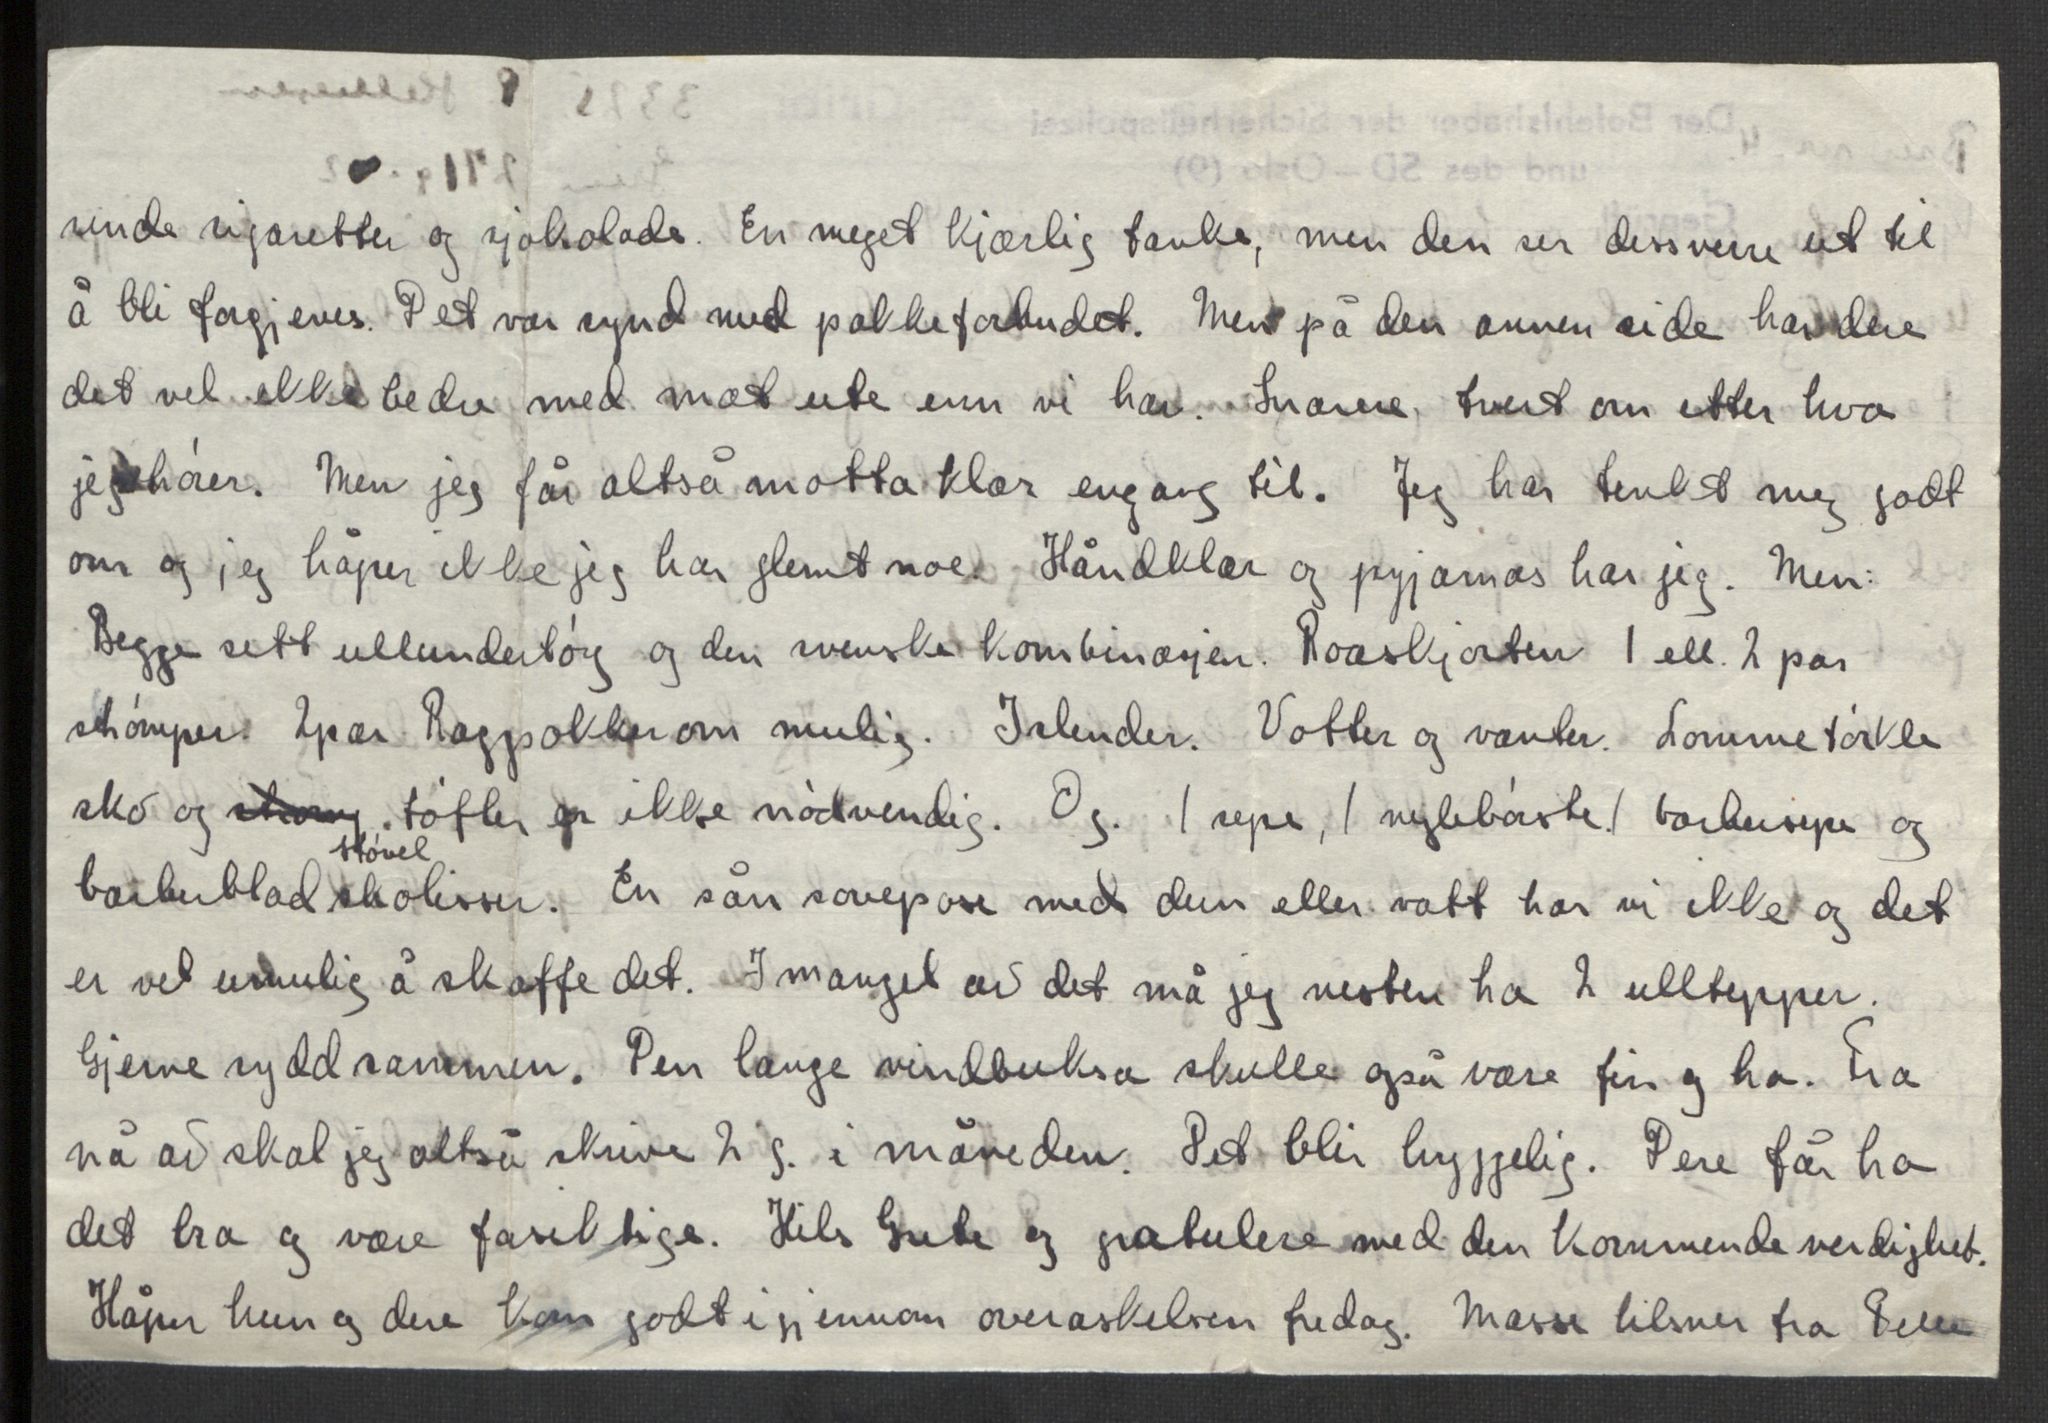 sende sigaretter og sjokolade. En meget kjærlig tanke, men den ser dessverre ut til
å bli forgjeves. Det var synd med pakkeforbudet. Men på den annen side har dere
det vel ikke bedre med mat ute enn vi har. Snarere tvert om etter hva
jeg hører. Men jeg får altså motta klær engang til. Jeg har tenkt meg godt
om og jeg håper ikke jeg har glemt noe. Håndklær og pyjamas har jeg. Men:
Begge sett ullundertøy og den svenske kombinasjen. Roaskjorten 1 ell. 2 par
strømper. 2 par Raggsokker om mulig. Islender. Votter og vanter. Lommetørkle
sko og tøfler er ikke nødvendig. Og. 1 sepe, 1 neglebørste. 1 barbersepe og
støvel
barberblad skolisser. En sån sovepose med dun eller vatt har vi ikke og det
er vel umulig å skaffe det. I mangel av det må jeg nesten ha 2 ulltepper.
Gjerne sydd sammen. Den lange vindbuksa skulle også være fin og ha. Fra
nå av skal jeg altså skrive 2 g. i måneden. Det blir hyggelig. Dere får ha
det bra og være forsiktige. Hils Grete og gratulere med den kommende verdighet.
Håper hun og dere kom godt igjennom overaskelsen fredag. Masse hilsner fra Pelle
Der Befehlshaber der Sicherheitspolizei
und des SD – Oslo (9)